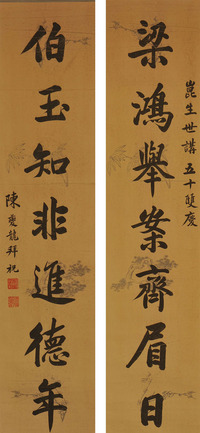 崑生世講五十雙慶
梁鴻舉案齊眉日
伯玉知非進德年
陳夔龍拜祝